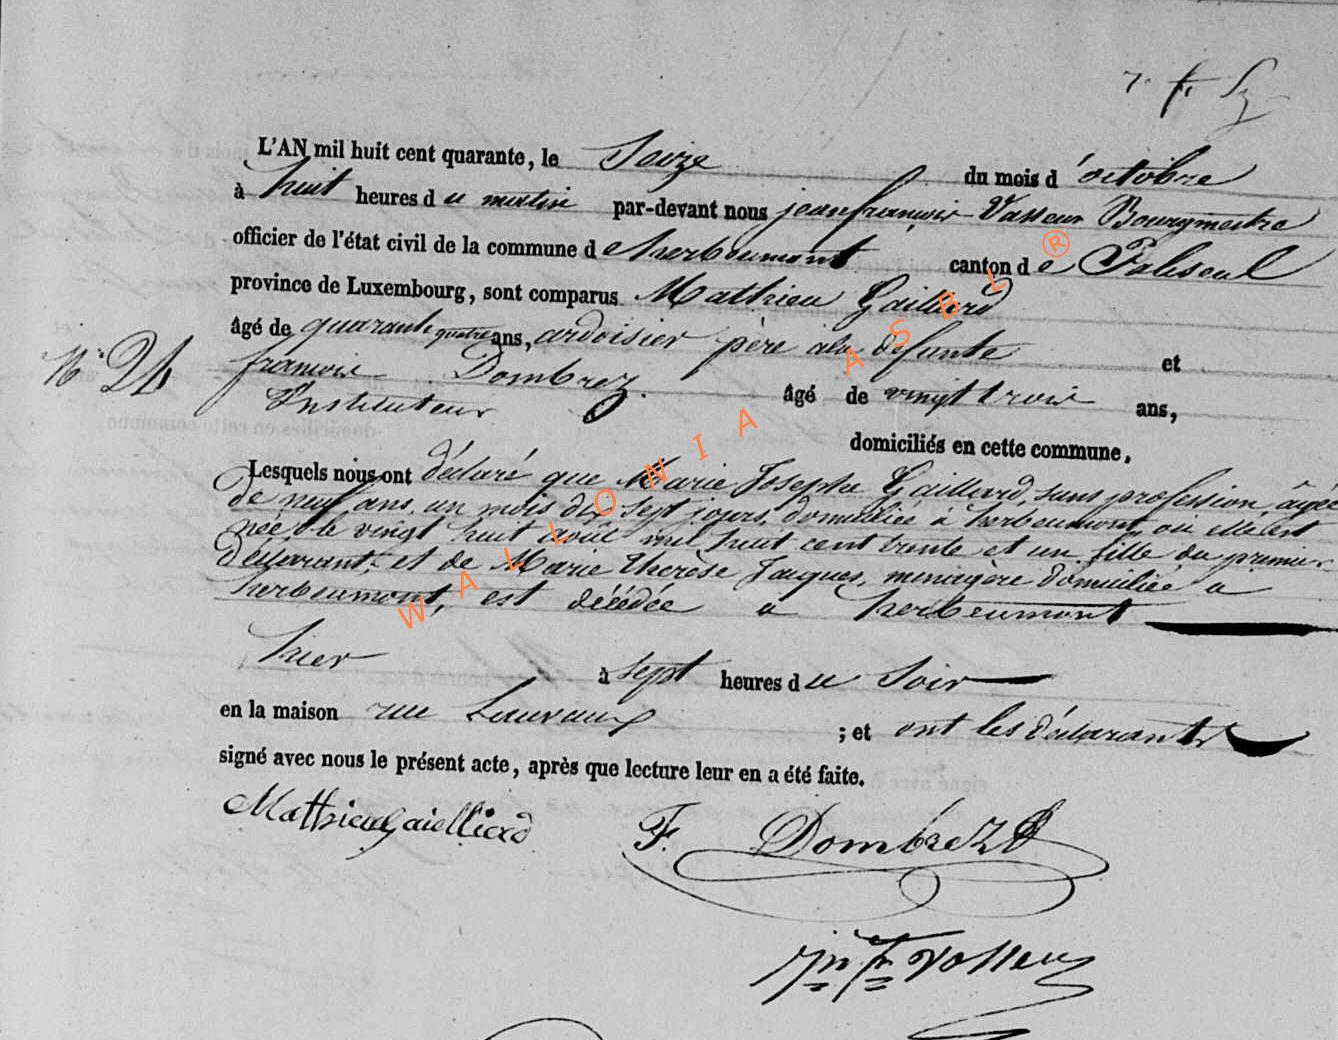 L'AN mil huit cent quarante, le Seize du mois d'octobre
à huit heures du matin par-devant nous jean françois Vasseur Bourgmestre
officier de l'état civil de la commune de herbeumont canton de Paliseul
province de Luxembourg, sont comparus Mathieu Gaillard
âgé de quarante quatre ans, ardoisier père a la défunte et
N° 24
françois Dombrez âgé de vingt trois ans,
Instituteur
domiciliés en cette commune.
Lesquels nous ont déclaré que Marie Josephe Gaillard, sans profession, âgée
de neuf ans, un mois dix sept jours, domiciliée à herbeumont, ou elle est
née le vingt huit août mil huit cent trente et un, fille du premier
déclarant, et de Marie Thérèse Jacques, menagère domiciliée a
herbeumont, est décédée a herbeumont
hier à sept heures du Soir
en la maison rue Lauvaux ; et ont les déclarants
signé avec nous le présent acte, après que lecture leur en a été faite.
Mathieu Gaielliard F. Dombrez
Jn Fr Vasseur
WALLONIA ASBL ®